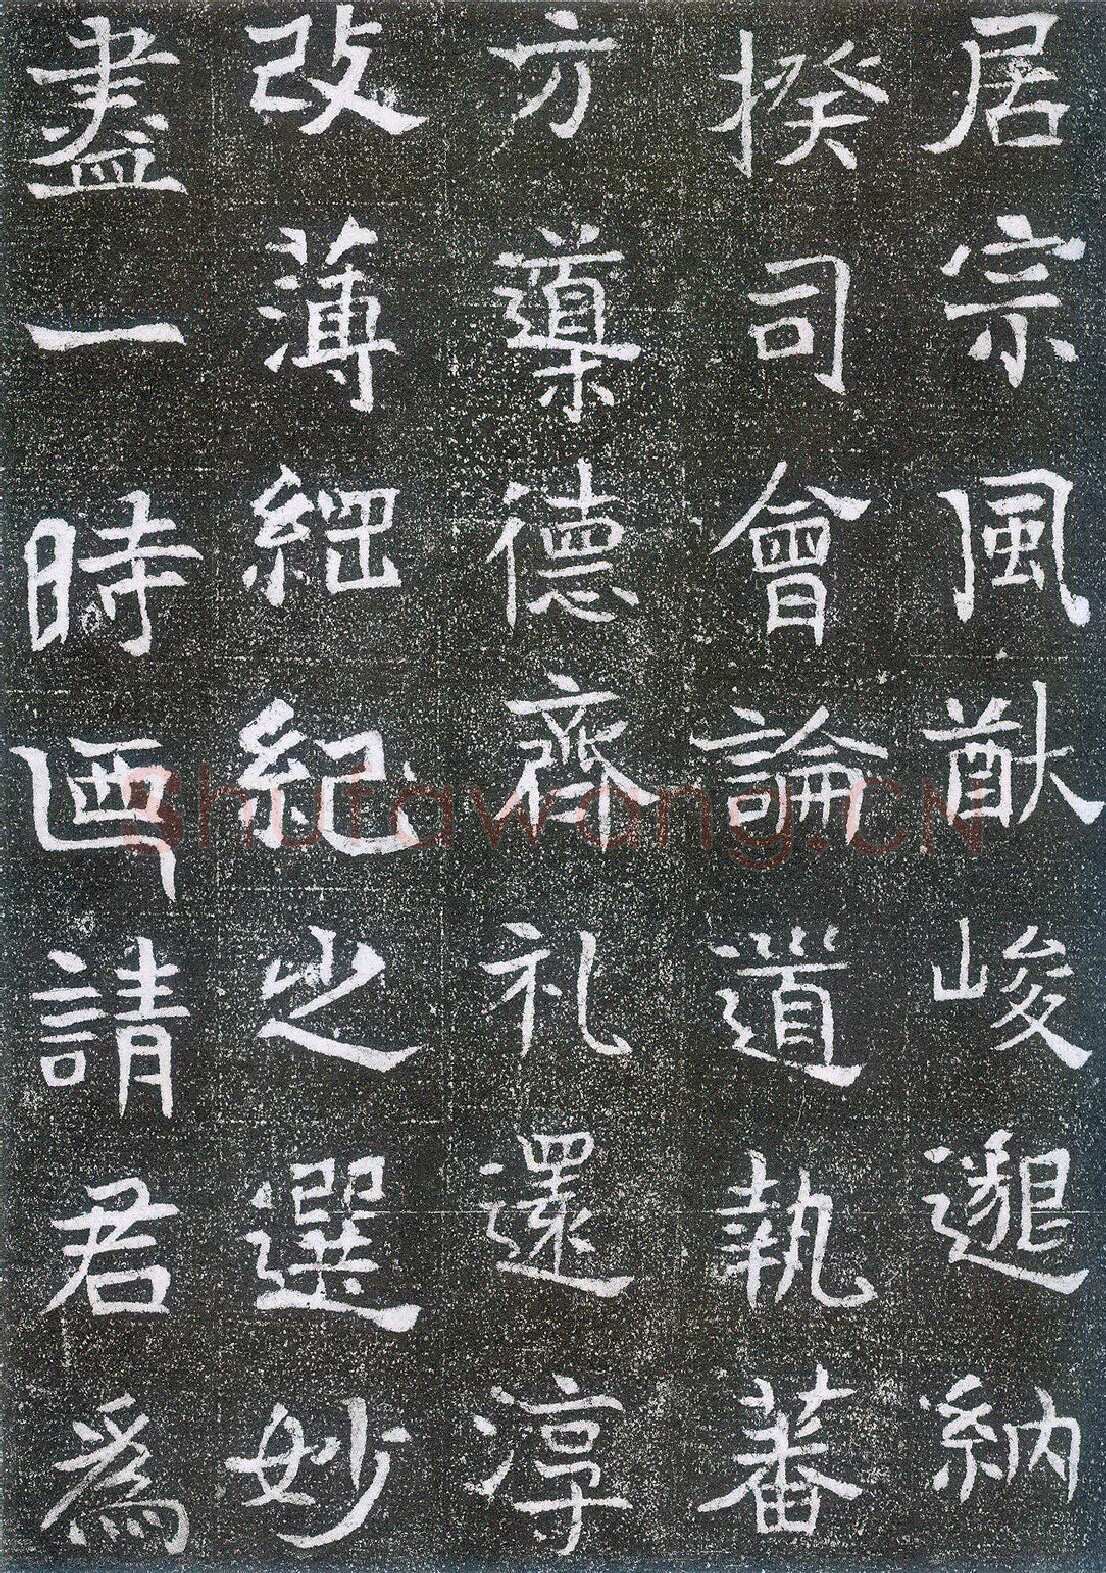 居宗風猷峻邈納
揆司會論道執蕃
方導德齊礼還淳
改薄綱紀之選妙
盡一時迺請君爲
Shufawang.CN